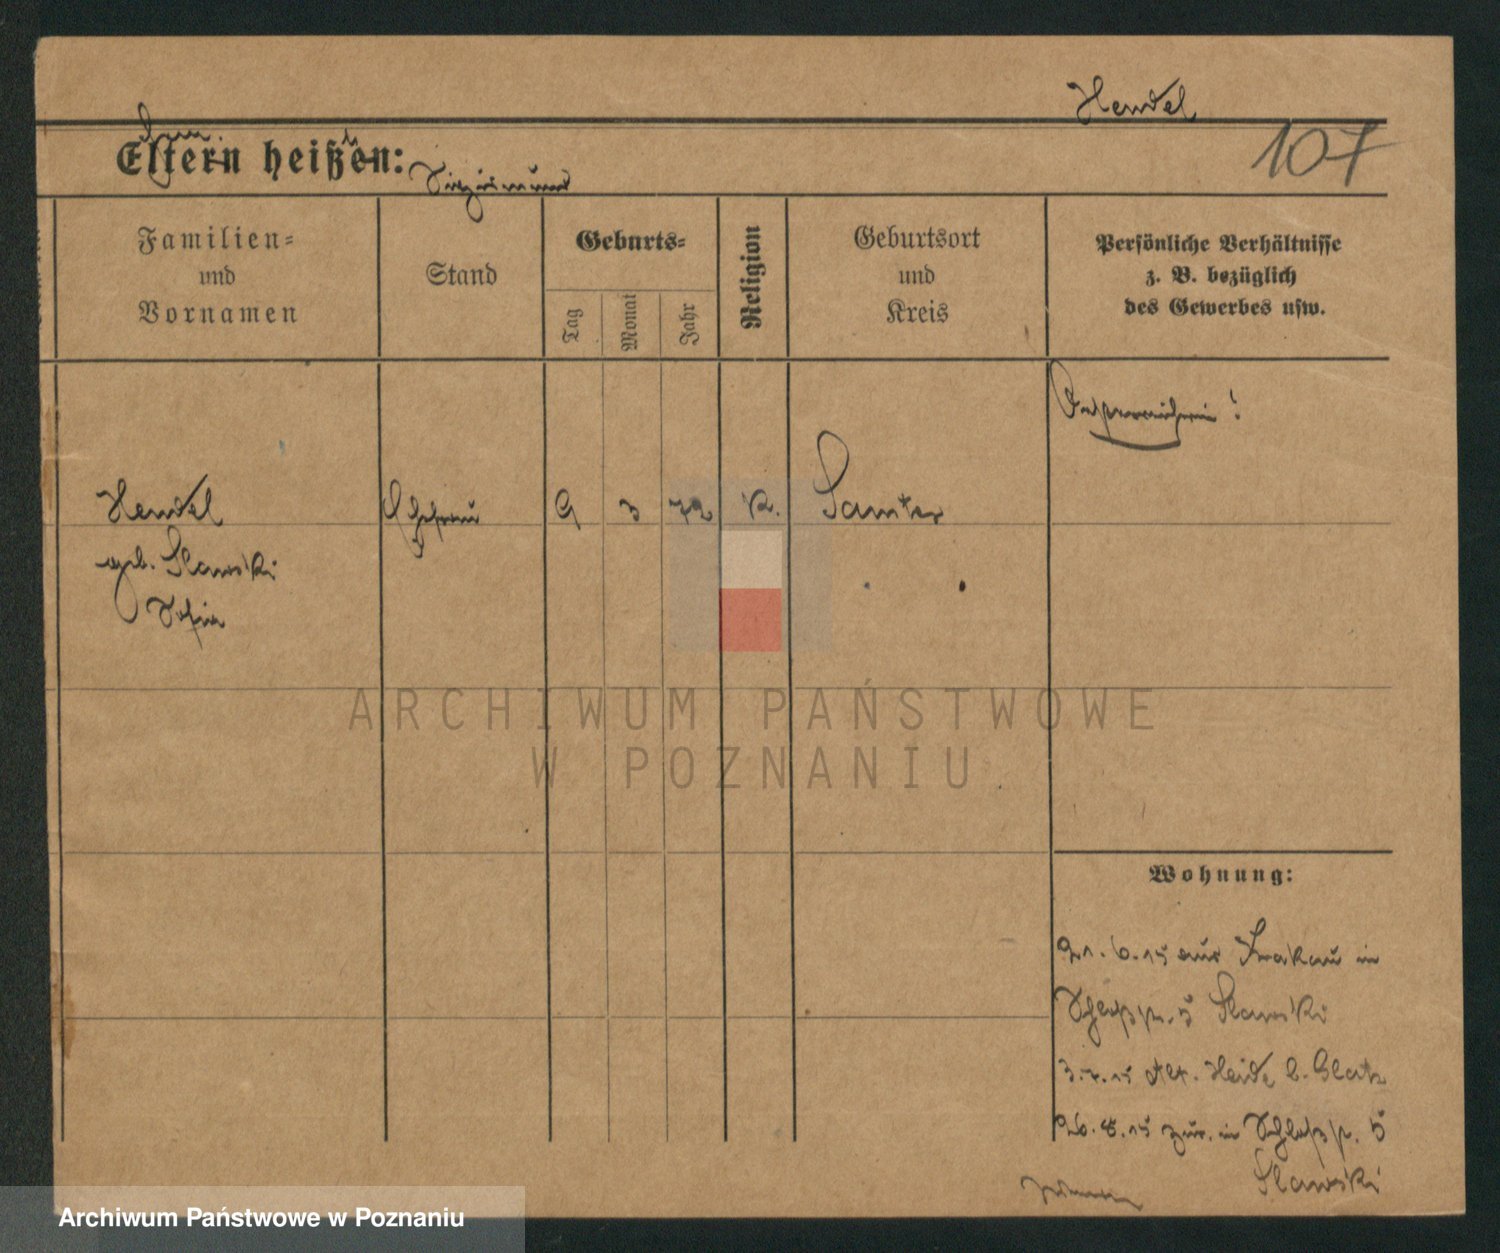 Hendel
107
Eltern heißen:
Siegismund
Familien-
und
Vornamen
Stand
Geburts-
Tag
Monat
Jahr
Religion
Geburtsort
und
Kreis
Persönliche Verhältnisse
z. B. bezüglich
des Gewerbes usw.
Oesterreicherin!
Hendel
geb. Slawski
Sofia
Ehefrau
9
3
72
K.
Samter
ARCHIWUM PAŃSTWOWE
W POZNANIU
Wohnung:
21.6.15 aus Krakau in
Schloßstr. 5 Slawski
3.7.15 Alt. Heide b. Glatz
26.8.15 zur. in Schloßstr. 5
Slawski
Archiwum Państwowe w Poznaniu